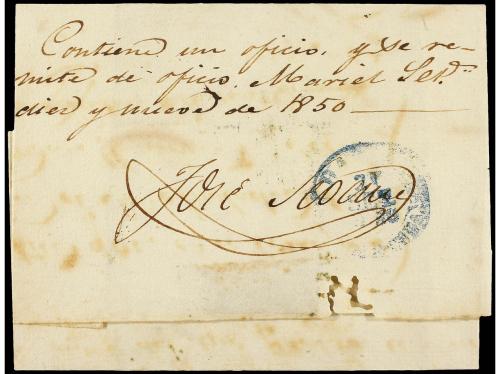 Contiene un oficio, y se re-
mite de oficio. Mariel Set.
diez y nueve de 1850
José